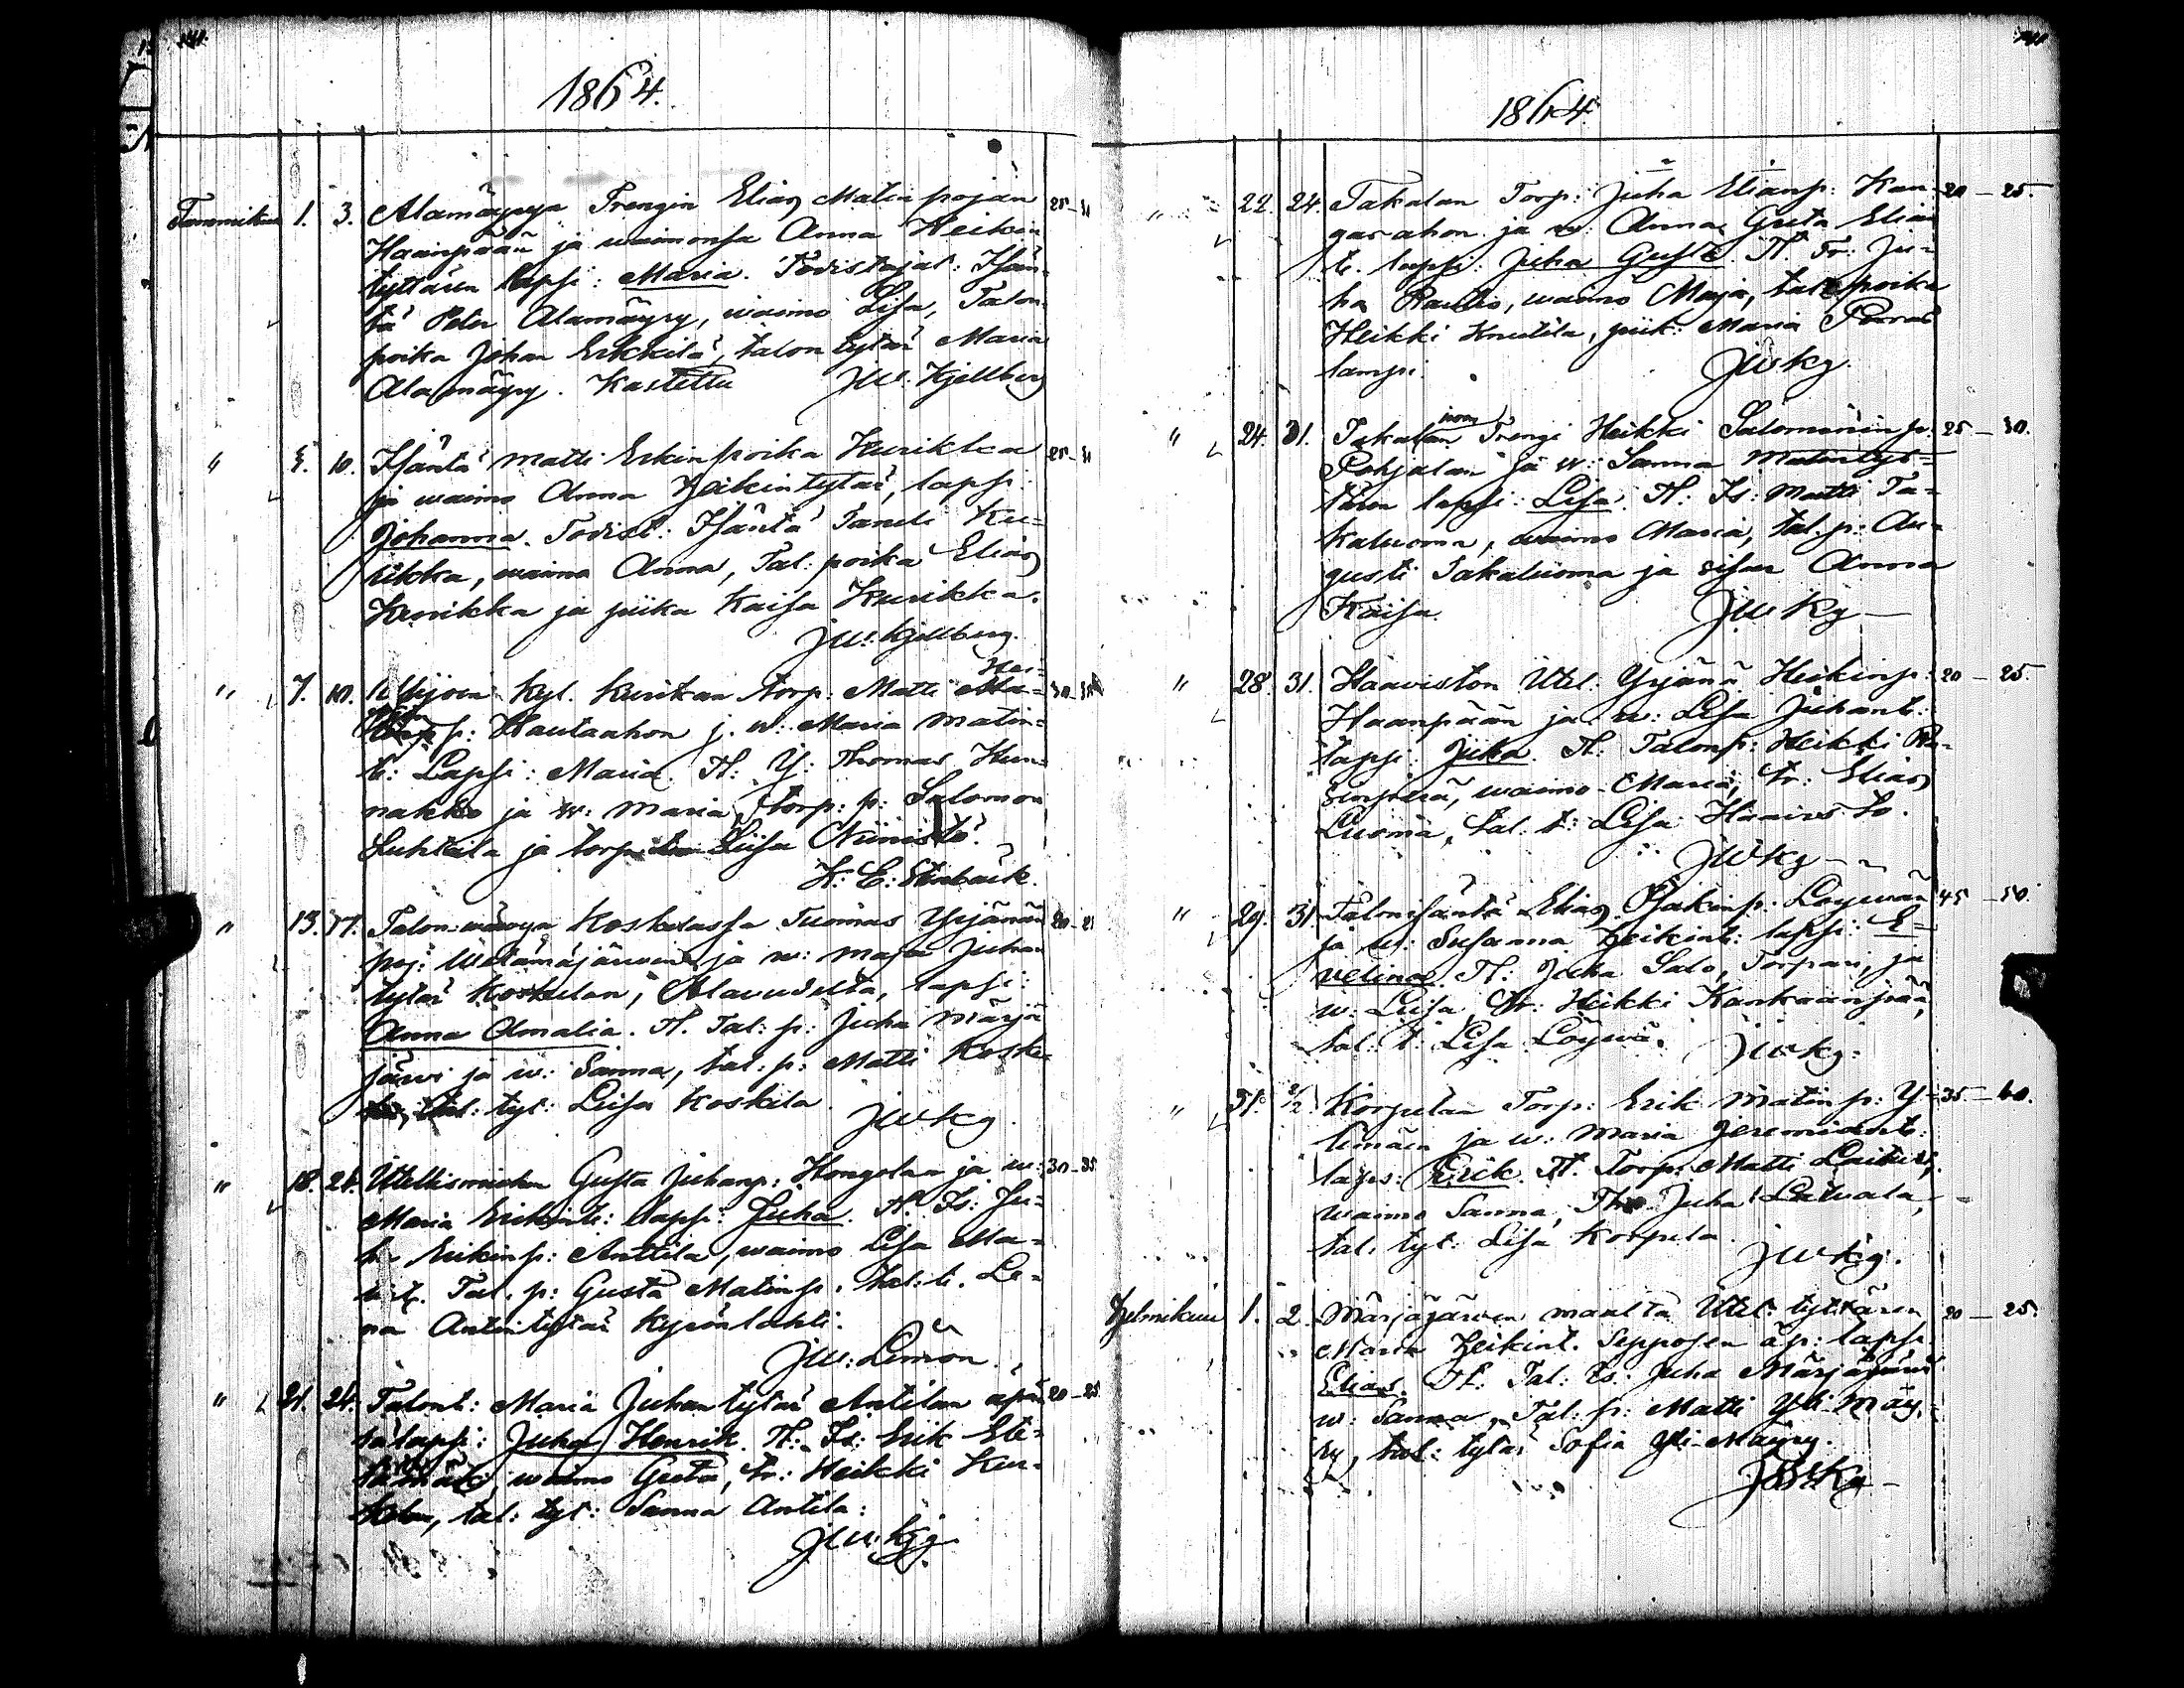 1864.
Tammikuu 1. 3. Alamäyryn Trengin Elias Matin pojan 25-
Haanpään ja waimonsa Anna Heikin
tyttären lapsi: Maria. Todistajat: Isän-
tä Peter Alamäyry, waimo Lisa, Talon
poika Johan Erkkilä, talon tytär Maria
Alamäyry. Kastettu JW. Kjellberg
" 5. 10. Isäntä Matti Erkinpoika Kurikka 25-
ja waimo Anna Heikintytär, lapsi:
Johanna. Todist: Isäntä Taneli Ku=
rikka, waimo Anna, Tal: poika Elias
Kurikka ja piika Kaisa Kurikka.
JW. Kjellberg.
" 7. 10. kyl. Kurikan torp: Matti Hei=
p: Hautaahon j. w: Maria Matin=
t: Lapsi: Maria. T: Y: Thomas Kun-
nakko ja w: Maria, torp: p: Salomon
Luhtala ja torp Liisa Niinistö.
K: E: Stenbäck.
" 13. 17. Talon wäwyn Koskelassa Tuomas Yrjänän 20-25
poj: ja w: Maja Juhan
tytär Koskelan, Alawudelta, lapsi:
Anna Amalia. T. Tal: p: Juha Märjä
järwi ja w: Sanna, tal: p: Matti Koske-
tal: tyt: Liisa Koskela
JWKg.
" 18. 24. Gusta Juhanp: Hongolan ja w: 30-35.
Maria Erkint: lapsi: Juha. T. Is: Ju-
ha Erikinp: Anttila, waimo Lisa Ma-
t. Tal. p: Gusta Matinp. tal: t. Le-
na Antintytär Kyrönlahti.
JW: Limón.
" 21. 24. Talont: Maria Juhantytär Antilan äpä- 20-25
rälapsi: Juha Henrik. T: Is: Erik
waimo Greta, tr: Heikki
tal: tyt: Sanna Antila:
JW. Kjg
1864.
" 22. 24. Takalan Torp: Juha Eliasp: Kan- 20-25.
gasahon ja w: Anna Greta Elian
t. lapsi: Juha Gusta. T. Tr: Ju-
ha Rautio, waimo Maja, tal poika
Heikki Knuutila, piik: Maria Porras
lampi. JWKg.
" 24. 31. Takaluoman Trengi Heikki Salomonin p: 25-30.
Pohjalan ja w: Sanna Matintyt=
tären lapsi: Lisa. T: Is: Matti Ta=
kaluoma, waimo Maria, tal. p: Au-
gusti Takaluoma ja sisar Anna
Kaisa. JWKg
" 28. 31. Haawiston Itel: Yrjänä Heikinp: 20-25.
Haanpään ja w: Lisa Juhant:
lapsi: Juha. T: Talonp: Heikki
waimo Maria, tr: Elias
Luoma, tal: t: Lisa Haawisto.
JWKg
" 29. 31. Talonisäntä Elias Isakinp: Löywän 45-50.
ja w: Susanna Heikint: lapsi: E-
velina. T: Juha Salo, Torpari, ja
w: Liisa, tr: Heikki Kankaanpää,
tal: t: Lisa Löywä. JWKg.
" 31. 2/2. Korpelan Torp: Erik Matin p: Y- 35-40.
linäen ja w: Maria Jeremiant:
laps: Erik. T. Torp: Matti
waimo Sanna, Juha Latwala,
tal. tyt: Lisa Korpela.
JWKg.
Helmikuu 1. 2. Märjäjärwen maalta Itel: tyttären 20-25.
Maria Heikint. Sepposen äp: lapsi
Elias. T: Tal: Is: Juha Märjäjärwi
w: Sanna, Tal: p: Matti Yli Mäy-
ry, tal: tytär Sofia Yli-Mäyry.
JWKg